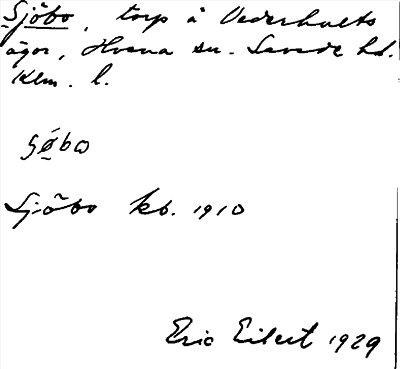 Sjöbo, torp å Vederhults
ägor, Hvena sn. Sevede hd.
Klm. l.
søbo
Sjöbo kb. 1910
Eric Eilert 1929